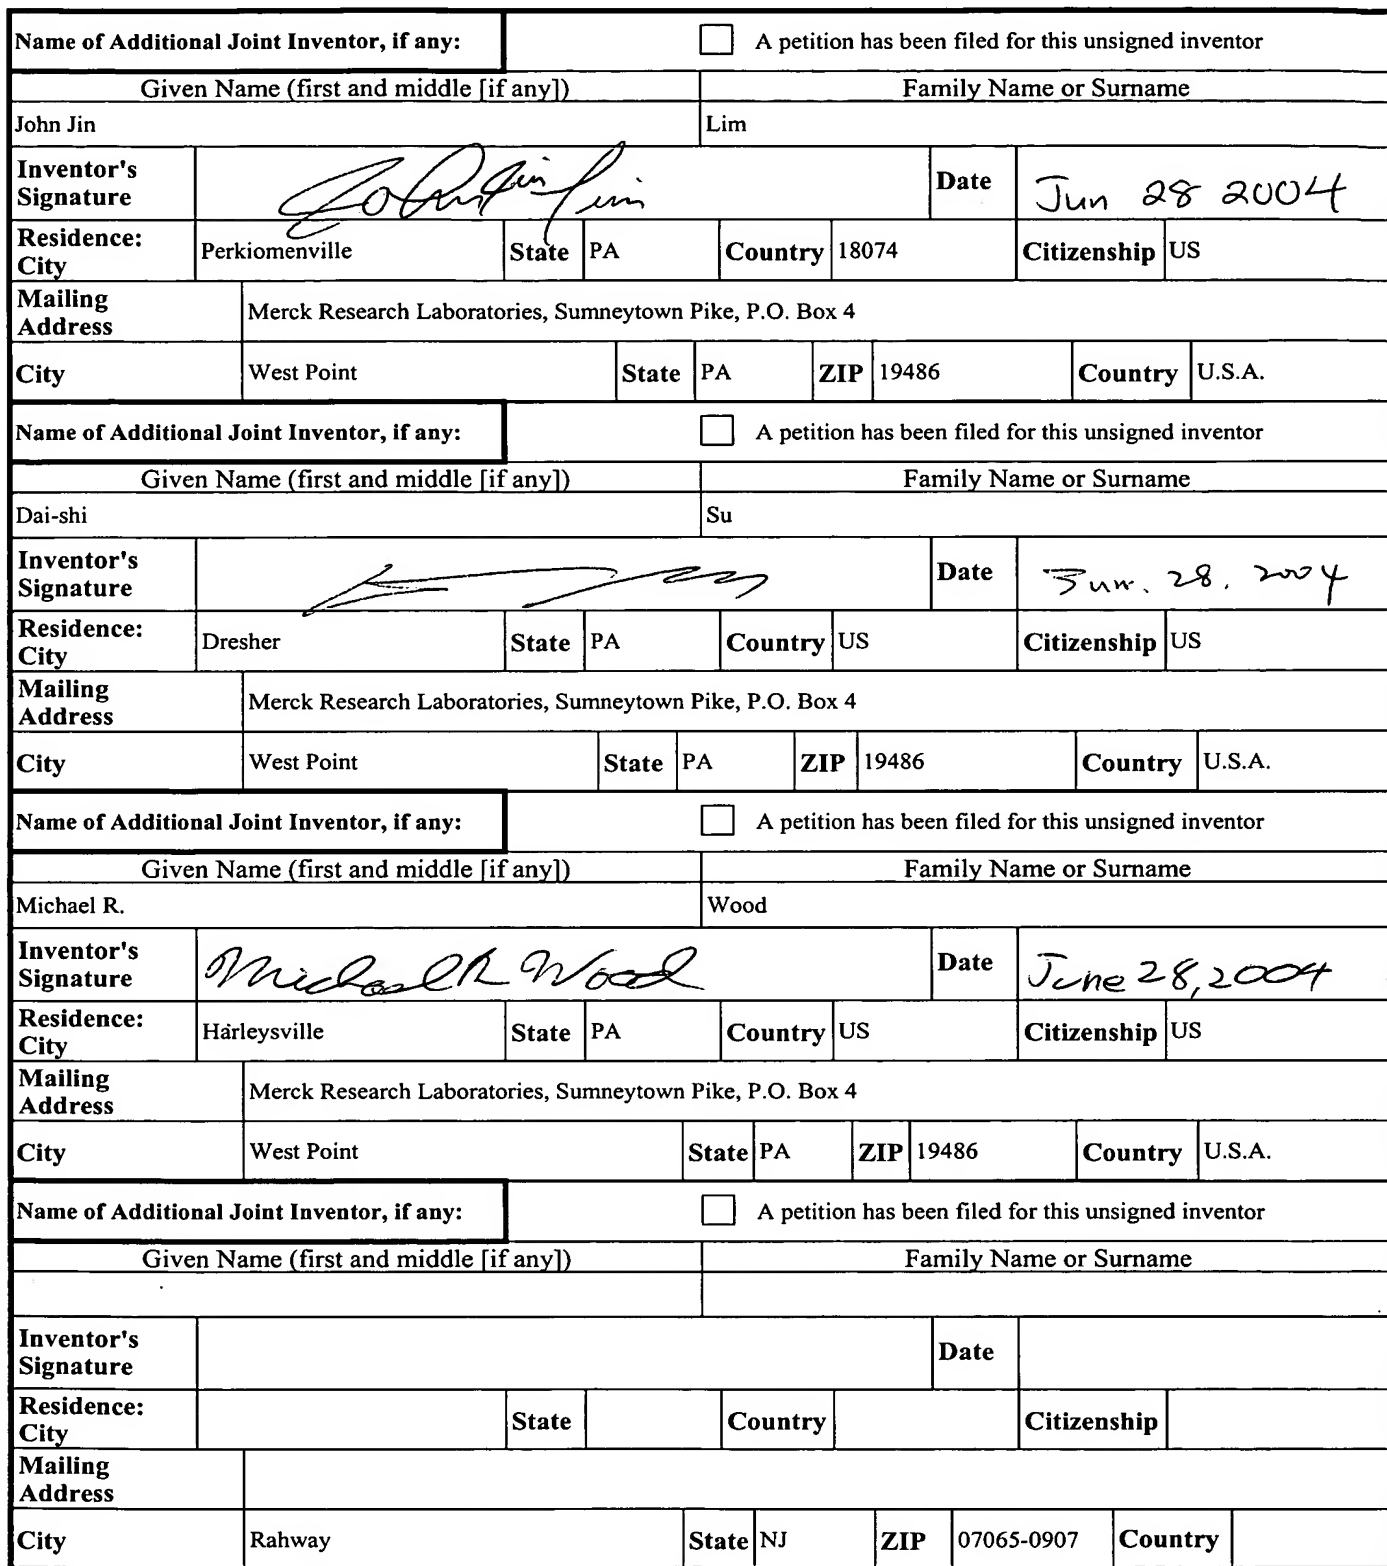 Name of Additional Joint Inventor, if any: A petition has been filed for this unsigned inventor
Given Name (first and middle [if any]) Family Name or Surname
John Jin Lim
Inventor's Signature John Jin Lim Date Jun 28 2004
Residence: City Perkiomenville State PA Country 18074 Citizenship US
Mailing Address Merck Research Laboratories, Sumneytown Pike, P.O. Box 4
City West Point State PA ZIP 19486 Country U.S.A.
Name of Additional Joint Inventor, if any: A petition has been filed for this unsigned inventor
Given Name (first and middle [if any]) Family Name or Surname
Dai-shi Su
Inventor's Signature Date Jun. 28, 2004
Residence: City Dresher State PA Country US Citizenship US
Mailing Address Merck Research Laboratories, Sumneytown Pike, P.O. Box 4
City West Point State PA ZIP 19486 Country U.S.A.
Name of Additional Joint Inventor, if any: A petition has been filed for this unsigned inventor
Given Name (first and middle [if any]) Family Name or Surname
Michael R. Wood
Inventor's Signature Michael R Wood Date June 28, 2004
Residence: City Harleysville State PA Country US Citizenship US
Mailing Address Merck Research Laboratories, Sumneytown Pike, P.O. Box 4
City West Point State PA ZIP 19486 Country U.S.A.
Name of Additional Joint Inventor, if any: A petition has been filed for this unsigned inventor
Given Name (first and middle [if any]) Family Name or Surname
Inventor's Signature Date
Residence: City State Country Citizenship
Mailing Address
City Rahway State NJ ZIP 07065-0907 Country